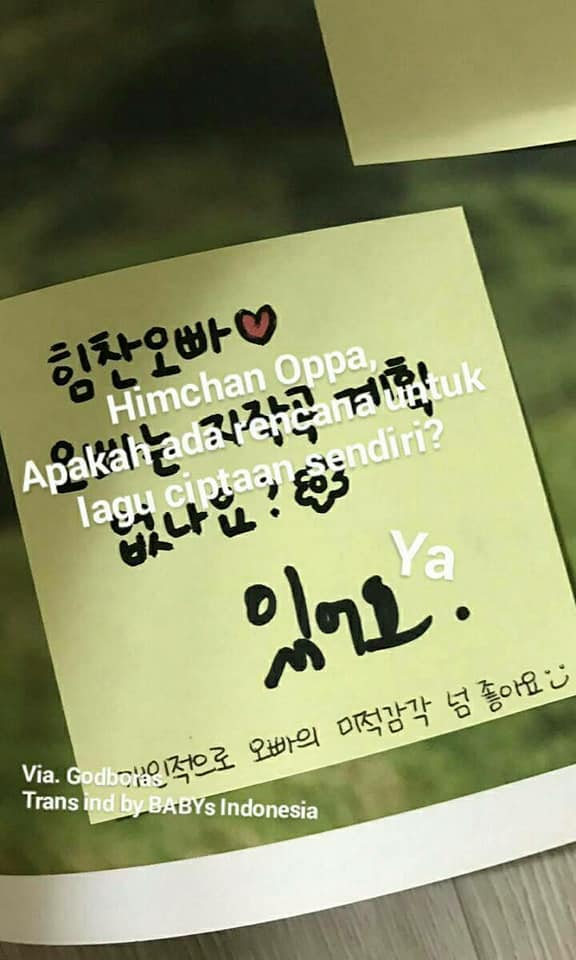 힘찬오빠♥
오빠는 자작곡 계획
없나요?
있어요.
개인적으로 오빠의 미적감각 넘 좋아요
Himchan Oppa,
Apakah ada rencana untuk
lagu ciptaan sendiri?
Ya
Via. Godboras
Trans ind by BABYs Indonesia